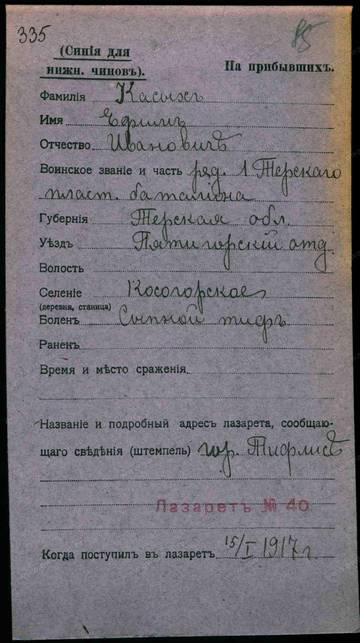 335
85
(Синія для
нижн. чиновъ).
На прибывшихъ.
Фамилія Касьянъ
Имя Ефимъ
Отчество Ивановичъ
Воинское званіе и часть ряд. 1 Терскаго
пласт. баталіона
Губернія Терская обл.
Уѣздъ Пятигорскій отд.
Волость
Селеніе Косогорское
(деревня, станица)
Боленъ Сыпной тифъ
Раненъ
Время и мѣсто сраженія
Названіе и подробный адресъ лазарета, сообщаю-
щаго свѣдѣнія (штемпель) гор. Тифлисъ
Лазаретъ № 40
Когда поступилъ въ лазаретъ 15/I 1917 г.